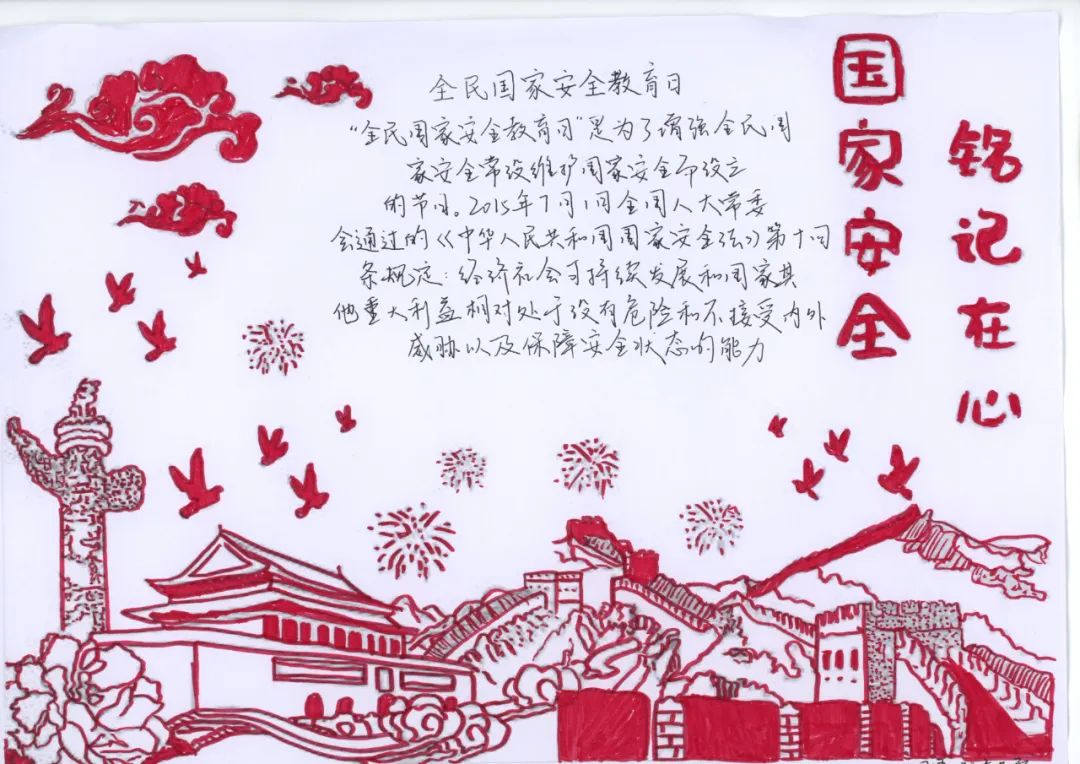 全民国家安全教育日
"全民国家安全教育日"是为了增强全民国
家安全常设维护国家安全而设立
的节日。2015年7月1日全国人大常委
会通过的《中华人民共和国国家安全法》第十四
条规定:经济社会可持续发展和国家其
他重大利益相对处于没有危险和不接受内外
威胁以及保障安全状态的能力
国家安全
铭记在心